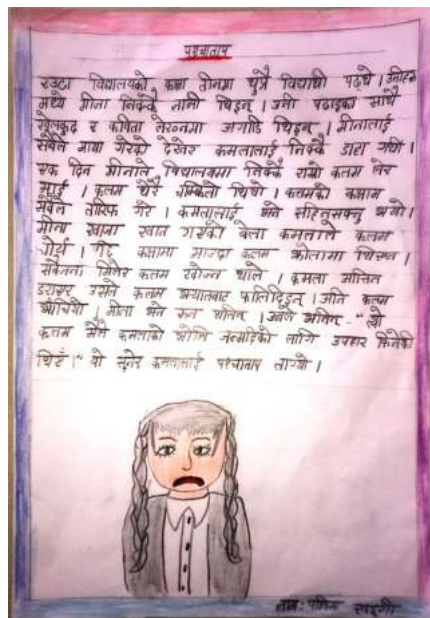 पश्चाताप
एउटा विद्यालयको कक्षा तीनमा थुप्रै विद्यार्थी पढ्थे । उनीहरू
मध्ये मीना निक्कै नानी थिइन् । उनी पढाइका साथै
खेलकुद र कविता लेख्नमा अगाडि थिइन् । मीनालाई
सबैले माया गरेको देखेर कमलालाई निक्कै डाहा लाग्थ्यो ।
एक दिन मीनाले विद्यालयमा निक्कै राम्रो कलम लिएर
आईन् । कलम धेरै चम्किलो थियो । कलमको कक्षामा
सबैले तारिफ गरे । कमलालाई भने सहिनसक्नु भयो ।
मीना खाना खान गएको बेला कमलाले कलम
चोरिन् । कक्षामा कलम झोलामा
सबैजना मिलेर कलम खोज्न थाले । कमला आत्तिन
डराएर उसले कलम झ्यालबाट फालिदिइन् । अनि कलम
भाँचियो । मीना भने रुन थालिन् । उनले भनिन् - "त्यो
कलम मैले कमलाको भोलि जन्मदिनको लागि उपहार किनेकी
थिएँ ।" यो सुनेर कमलालाई पश्चाताप लाग्यो ।
नाम: